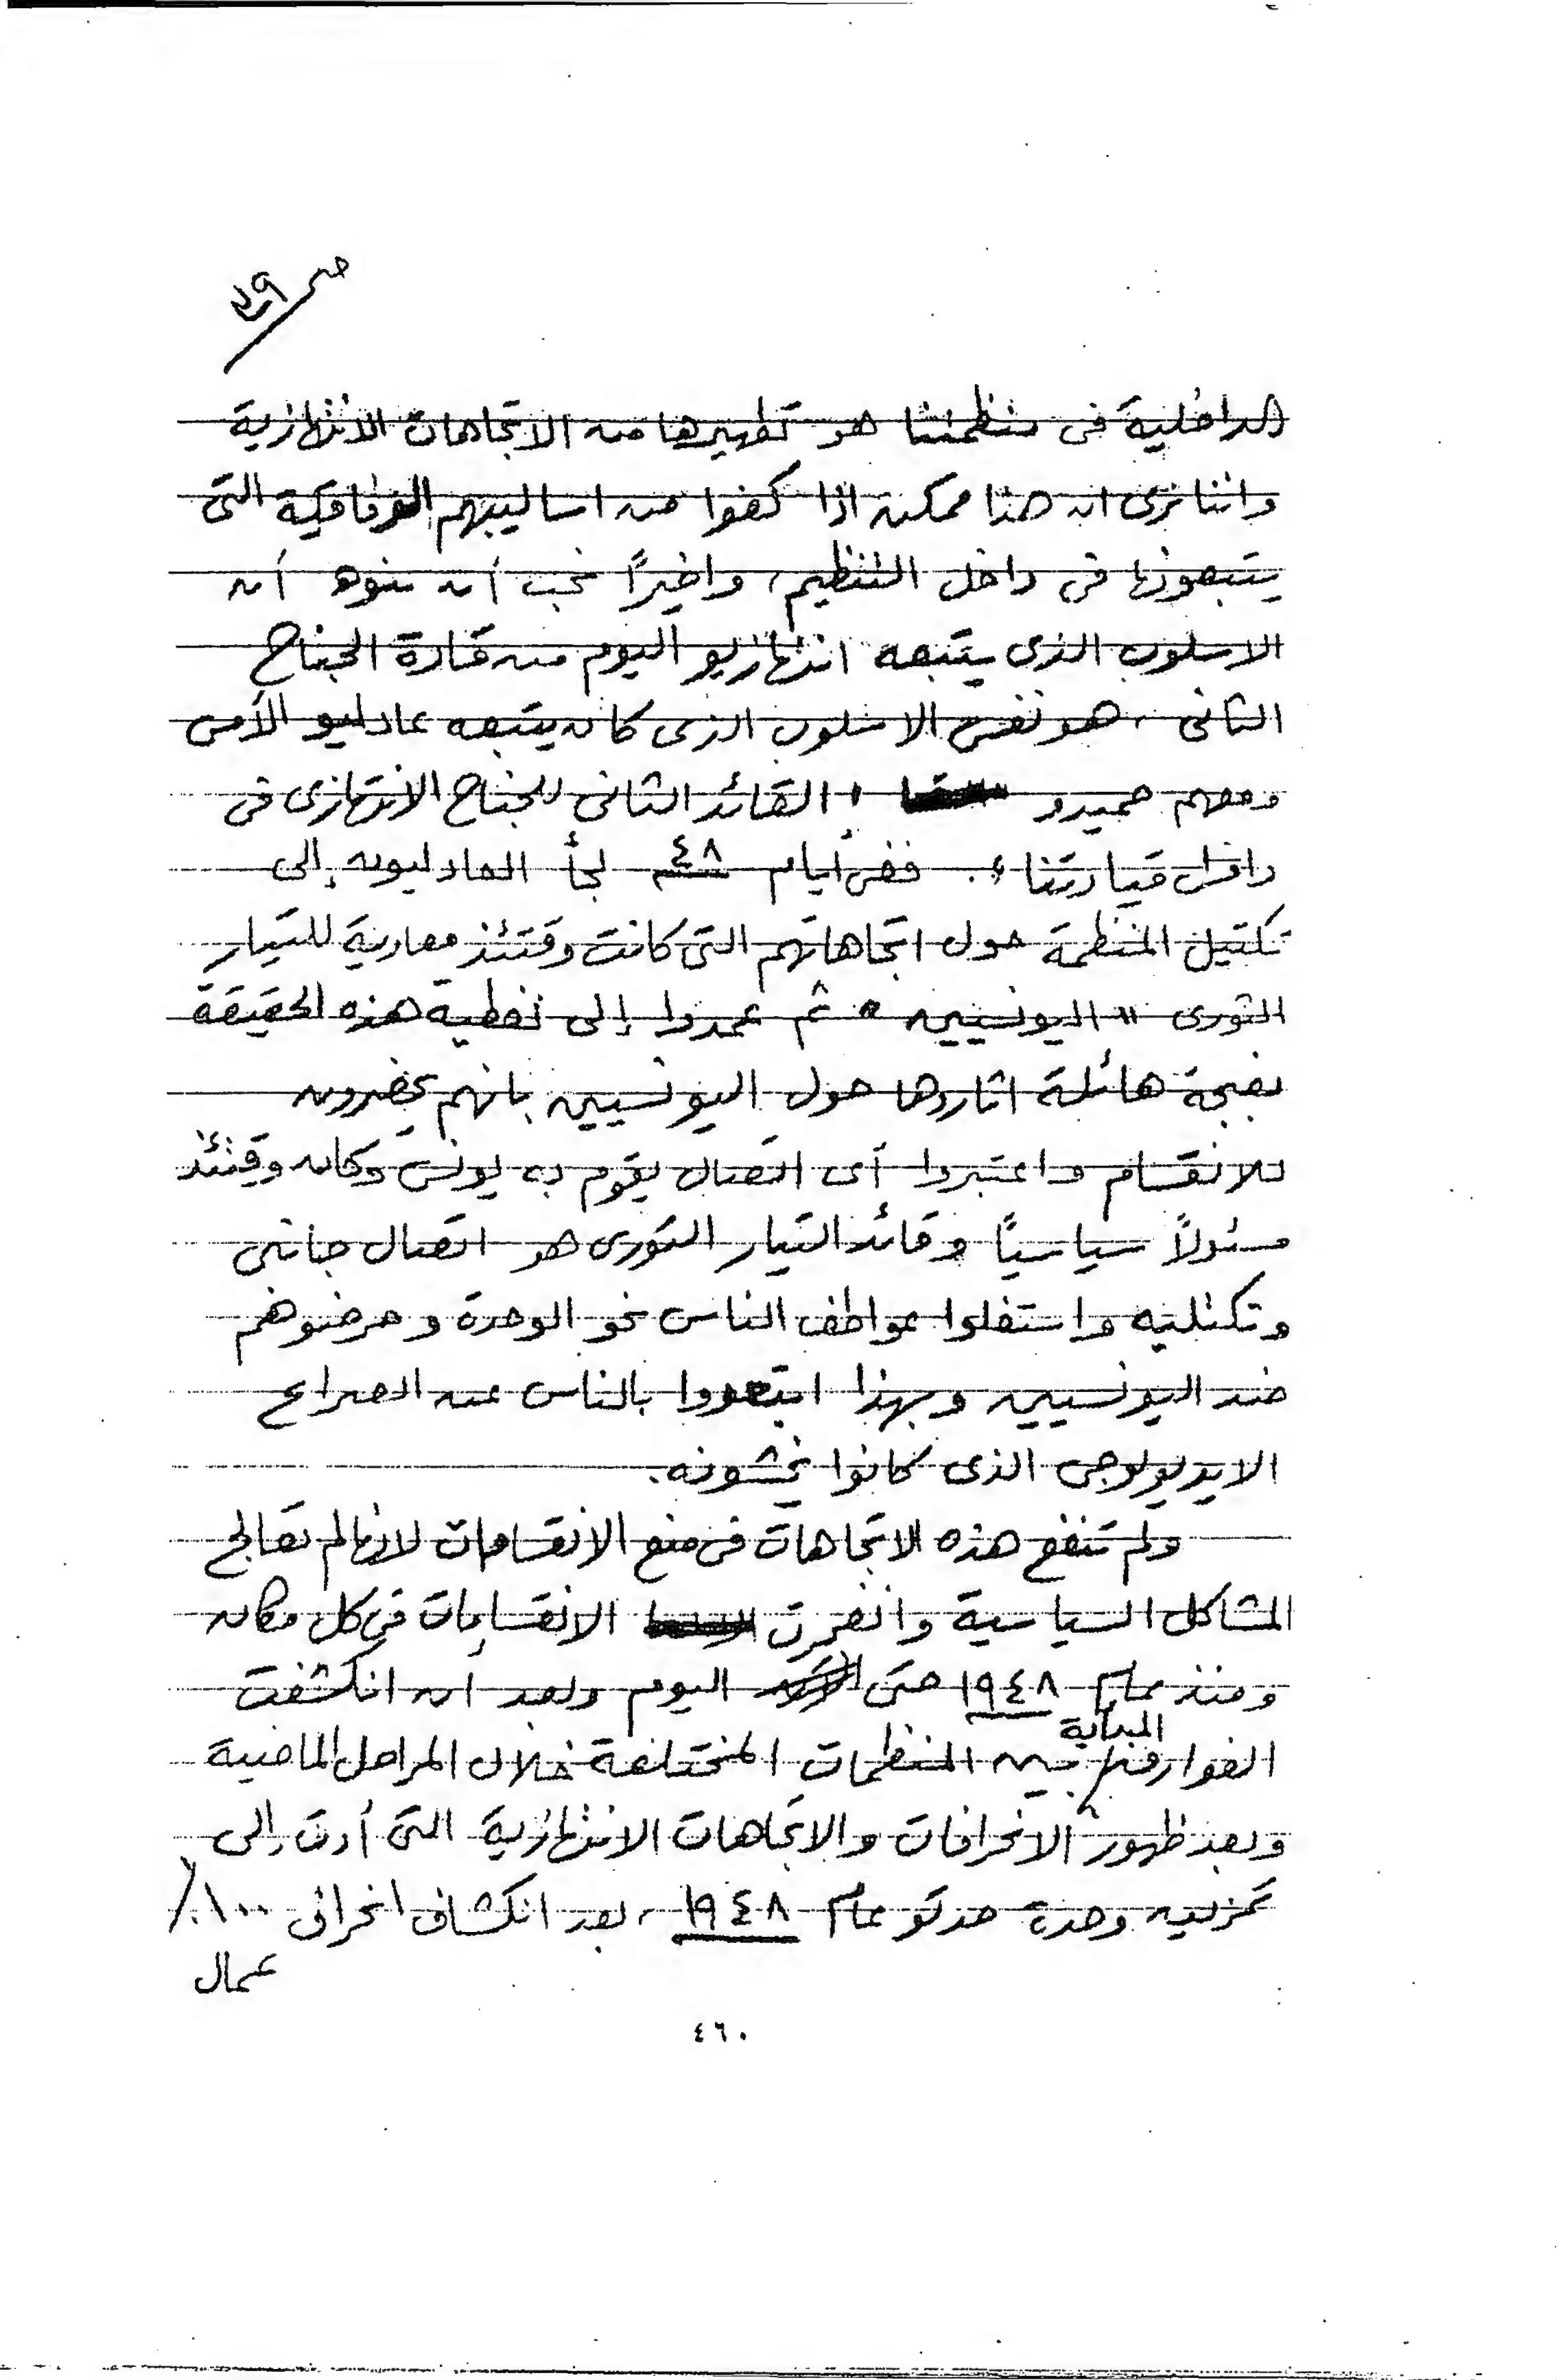 ص ٧٩
الداخلية فى منظمتنا هو تطهيرها من الاتجاهات الانتهازية
واننا نرى ان هذا ممكن اذا كفوا من اساليبهم النفاقية التى
يتبعونها فى داخل التنظيم، واخيراً نحب أن ننوه أن
الاسلوب الذى يتبعه انتهازيو اليوم من قادة الجناح
الثانى، هو نفس الاسلوب الذى كان يتبعه عادليو الأمس
ومعهم حميدو " القائد الثانى للجناح الانتهازى فى
داخل قيادتنا ". ففى أيام ٤٨ لجأ العادليون إلى
تكتيل المنظمة حول اتجاهاتهم التى كانت وقتئذ معادية للتيار
الثورى " اليونسيين " ثم عمدوا إلى تغطية هذه الحقيقة
بضجة هائلة اثاروها حول اليونسيين بانهم يحضرون
للانقسام واعتبروا أى اتصال يقوم به يونس وكان وقتئذ
مسئولاً سياسياً وقائد التيار الثورى هو اتصال جانبى
وتكتليه واستغلوا عواطف الناس نحو الوحدة وحرضوهم
ضد اليونسيين وبهذا ابتعدوا بالناس عن الصراع
الايديولوجى الذى كانوا يخشونه.
ولم تنفع هذه الاتجاهات فى منع الانقسامات لانها لم تعالج
المشاكل السياسية وانفجرت الانقسامات فى كل مكان
ومنذ عام ١٩٤٨ حتى اليوم وبعد ان انكشفت
الفوارق المبدأية بين المنظمات المختلفة خلال المراحل الماضية
وبعد ظهور الانحرافات والاتجاهات الانتهازية التى أدت إلى
تمزيق وحدة حدتو عام ١٩٤٨، بعد انكشاف انحراف ١٠٠٪
عمال
٤٦٠